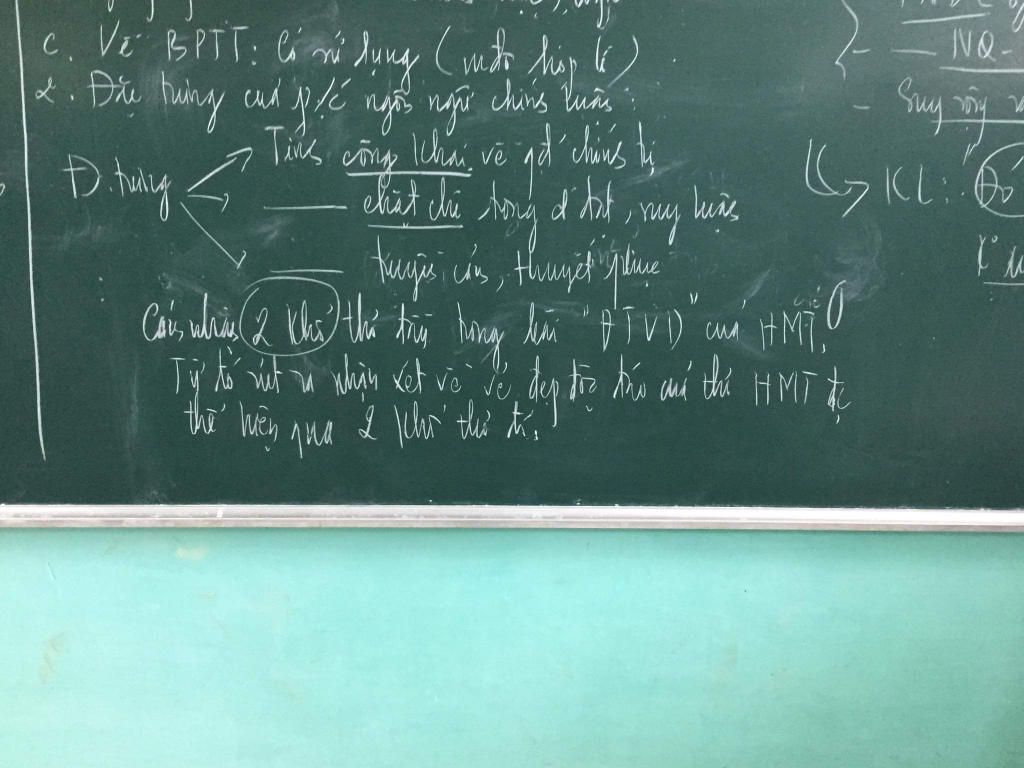 c. Về BPTT: Có sử dụng (mđộ hợp lí)
2. Đặc trưng của p/c ngôn ngữ chính luận:
Đ. trưng
Tính công khai về qđ chính trị
chặt chẽ trong d đạt, suy luận
truyền cảm, thuyết phục
Cảm nhận 2 khổ thơ trong bài "ĐTVD" của HMT.
Từ đó rút ra nhận xét về vẻ đẹp độc đáo của thơ HMT đc
thể hiện qua 2 khổ thơ đó.
NQ -
- Suy rộng
KL: